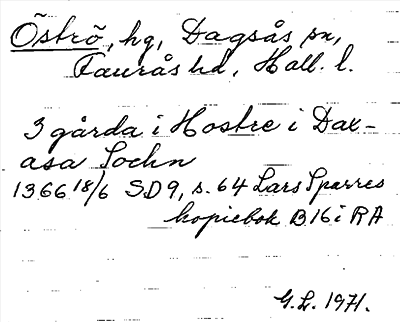 Öströ, hg, Dagsås sn,
Faurås hd, Hall. l.
3 gårda i Hostre i Dax-
asa Sochn
1366 18/6 SD9, s. 64 Lars Sparres
kopiebok B16 i RA
G.L. 1971.